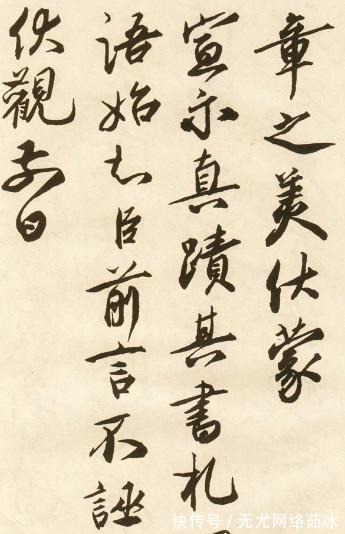 章之美伏蒙
宣示真蹟其書札
語始知臣前言不誣
伏觀去日
快传号／无尤网络茹冰